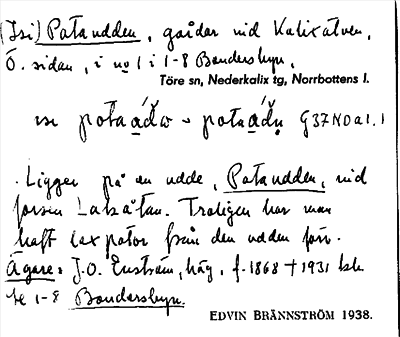 (Isi) Pataudden, gårdar vid Kalixälven,
Ö. sidan, i no 1 i 1-8 Bondersbyn.
Töre sn, Nederkalix tg, Norrbottens l.
G37NDa1.1
Ligger på en udde, Pataudden, vid
forsen Troligen har man
haft laxpator från den udden förr.
Ägare: J.O. Enström, häg, f. 1868 † 1931
se 1-8 Bondersbyn.
EDVIN BRÄNNSTRÖM 1938.